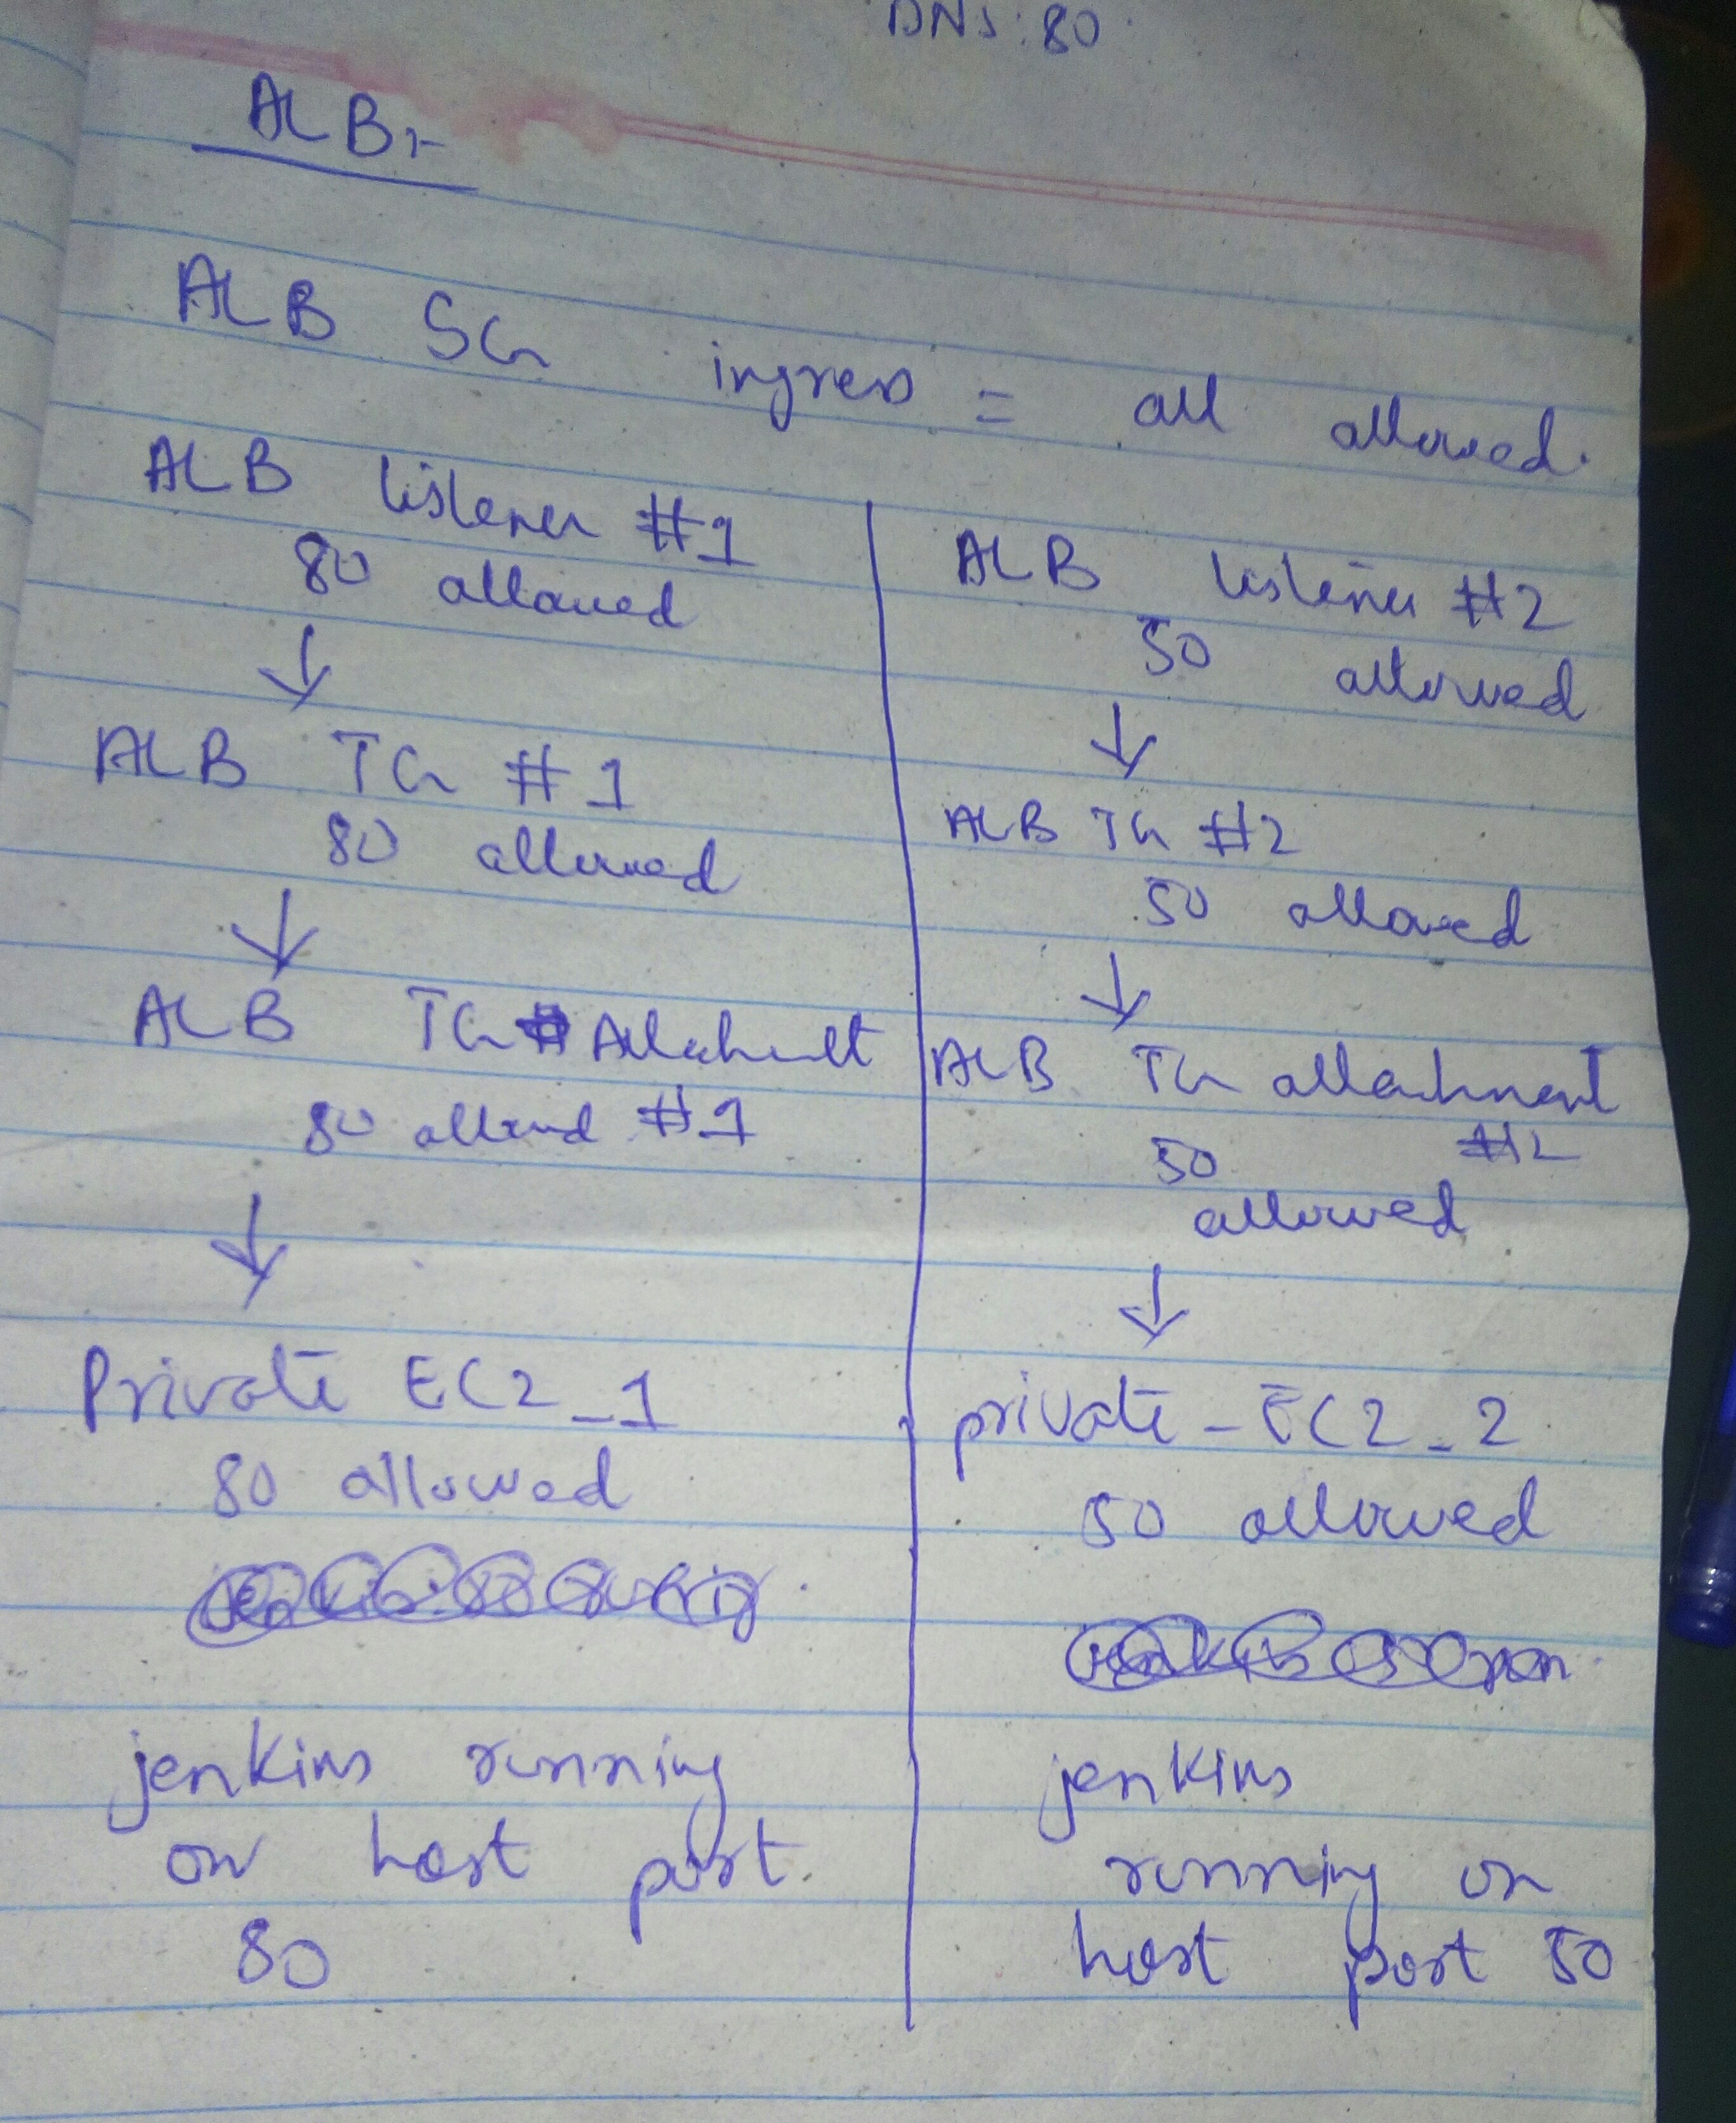 DNS:80
ALB:-
ALB SG ingress = all allowed.
ALB listener #1
80 allowed
↓
ALB TG #1
80 allowed
↓
ALB TG Attachment
80 allowed #1
↓
Private EC2_1
80 allowed
jenkins running
on host port.
80
ALB listener #2
50 allowed
↓
ALB TG #2
50 allowed
↓
ALB TG attachment
#2
50
allowed
↓
private-EC2_2
50 allowed
jenkins
running on
host port 50